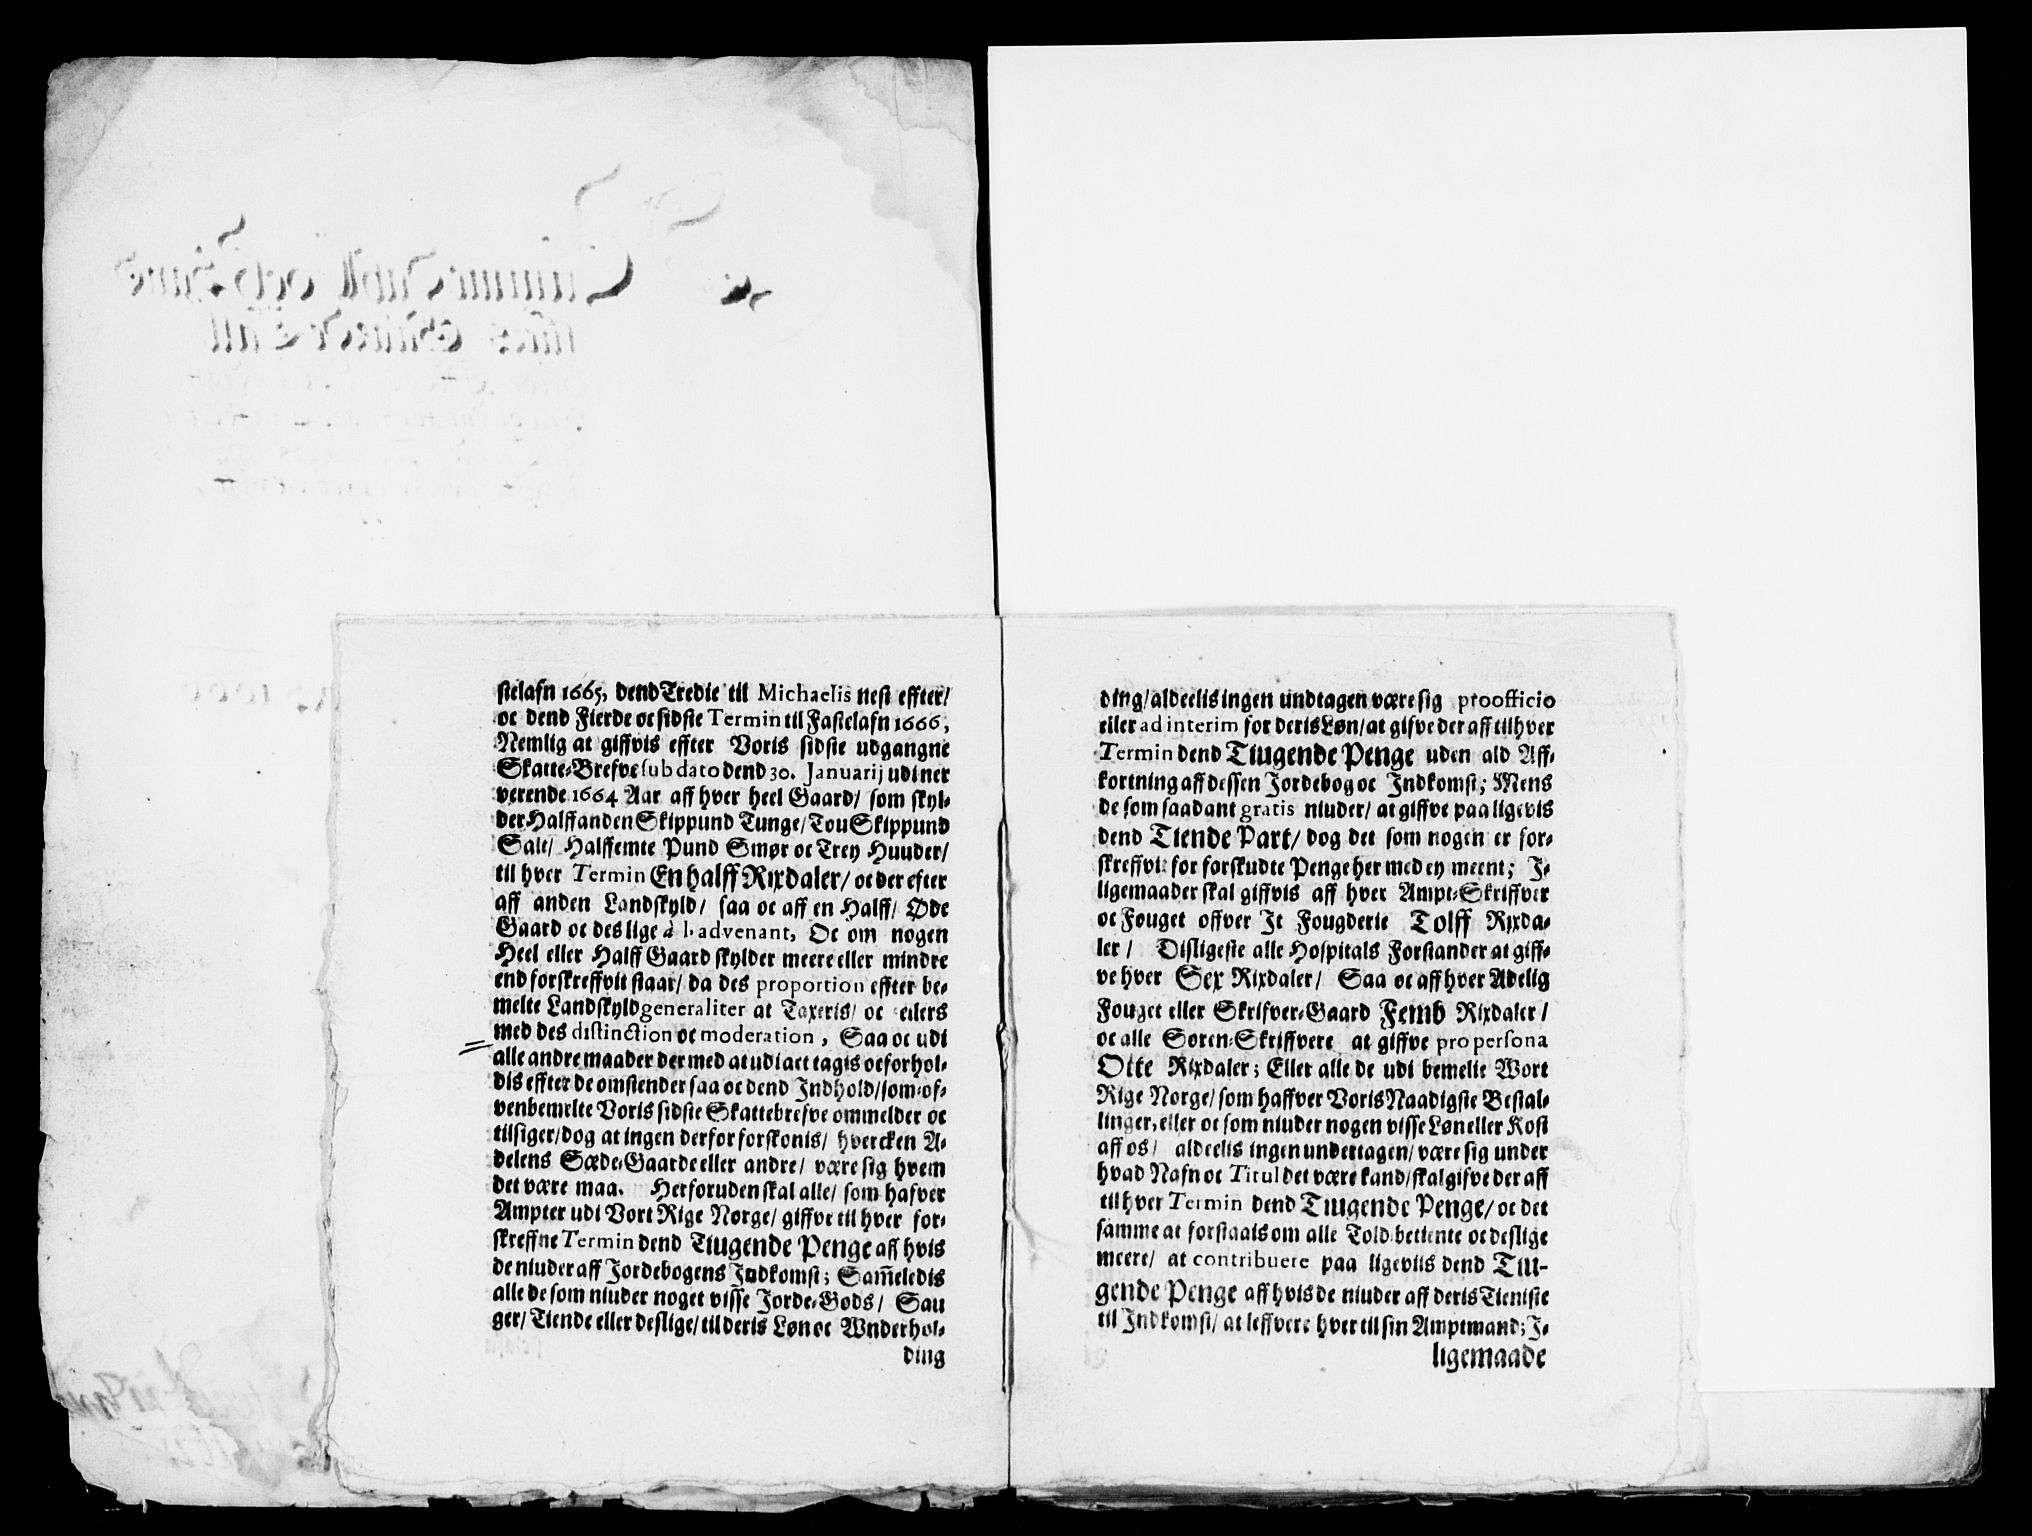 stelafn 1665, dend Tredie til Michaelis nest effter/
oc dend Fierde oc sidste Termin til Fastelafn 1666,
Nemlig at giffvis effter Voris sidste udgangne
Skatte-Brefve sub dato dend 30. Januarij udi ner
verende 1664 Aar aff hver heel Gaard/ som skyl-
der Halffanden Skippund Tunge/ Tou Skippund
Salt/ Halffemte Pund Smør oc Trey Huuder/
til hver Termin En halff Rixdaler/ oc der efter
aff anden Landskyld/ saa oc aff en Halff/ Øde
Gaard oc des lige a l'advenant, Oc om nogen
Heel eller Halff Gaard skylder meere eller mindre
end forskreffvit staar/ da des proportion effter be-
melte Landskyld generaliter at Taxeris/ oc ellers
med des distinction oc moderation, Saa oc udi
alle andre maader der med at udi act tagis oc forhol-
dis effter de omstender saa oc dend Indhold/ som of-
venbemelte Voris sidste Skattebrefve ommelder oc
tilsiger/ dog at ingen derfor forskonis/ hvercken A-
delens Sæde-Gaarde eller andre/ være sig hvem
det være maa. Herforuden skal alle/ som hafver
Ampter udi Vort Rige Norge/ giffve til hver for-
skreffne Termin dend Tiugende Penge aff hvis
de niuder aff Jordebogens Indkomst; Sam̃eledis
alle de som niuder noget visse Jorde-Gods/ Sau
ger/ Tiende eller deslige/ til deris Løn oc Wnderhol-
ding
ding/ aldeelis ingen undtagen være sig pro officio
eller ad interim for deris Løn/ at gifve der aff til hver
Termin dend Tiugende Penge uden ald Aff-
kortning aff dessen Jordebog oc Indkomst; Mens
de som saadant gratis niuder/ at giffve paa ligevis
dend Tiende Part/ dog det som nogen er for-
skreffvit for forskudte Penge her med ey meent; I-
ligemaader skal giffvis aff hver Ampt-Skriffver
oc Fouget offver It Fougderie Tolff Rixda-
ler/ Disligeste alle Hospitals Forstander at giff-
ve hver Sex Rixdaler/ Saa oc aff hver Adelig
Fouget eller Skrifver-Gaard Femb Rixdaler/
oc alle Soren-Skriffvere at giffve pro persona
Otte Rixdaler; Eller alle de udi bemelte Wort
Rige Norge/ som haffver Voris Naadigste Bestal-
linger, eller oc som niuder nogen visse Løn eller Kost
aff os/ aldeelis ingen undertagen/ være sig under
hvad Nafn oc Titul det være kand/ skal gifve der aff
til hver Termin dend Tiugende Penge/ oc det
samme at forstaais om alle Told-betiente oc deslige
meere/ at contribuere paa ligeviis dend Tiu-
gende Penge aff hvis de niuder aff deris Tieniste
til Indkomst/ at leffvere hver til sin Amptmand; I-
ligemaade